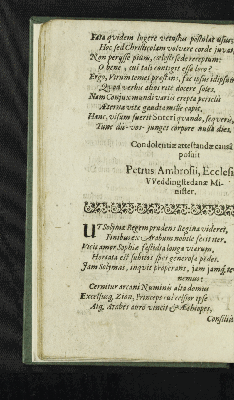 Fata quidem lugere vetustus postulat usus,
Hoc sed Christicolam volvere corde juvat,
Non perisse piam, cœlis sed esse receptam:
O bene, cui tali contigit esse loco?
Ergo, Virum temet præstans, fac usus idipsum
Quod verbis alios rite docere soles.
Nam Conjux mundi variis erepta periclis
Æterna vitæ gaudia mille capit.
Hanc, visum fuerit Soteri quando, sequeris,
Tunc diu-vos-junget corpore nulla dies.
Condolentiæ attestandæ causâ
posuit
Petrus Ambrosii, Ecclesi
VVeddingstedanæ Mi-
nister.
UT Solymæ Regem prudens Regina videret,
Finibus ex Arabum nobile fecit iter.
Vicit amor Sophiæ fastidia longa viarum,
Hortata est subitos spes generosa pedes.
Jam Solymas, inqvit properans, jam jamq; te-
nemus:
Cernitur arcani Numinis alta domus
Excelsaq; Zion, Princeps cui celsior ipse
Atq; Arabes auro vincit & Æthiopes,
Consilii